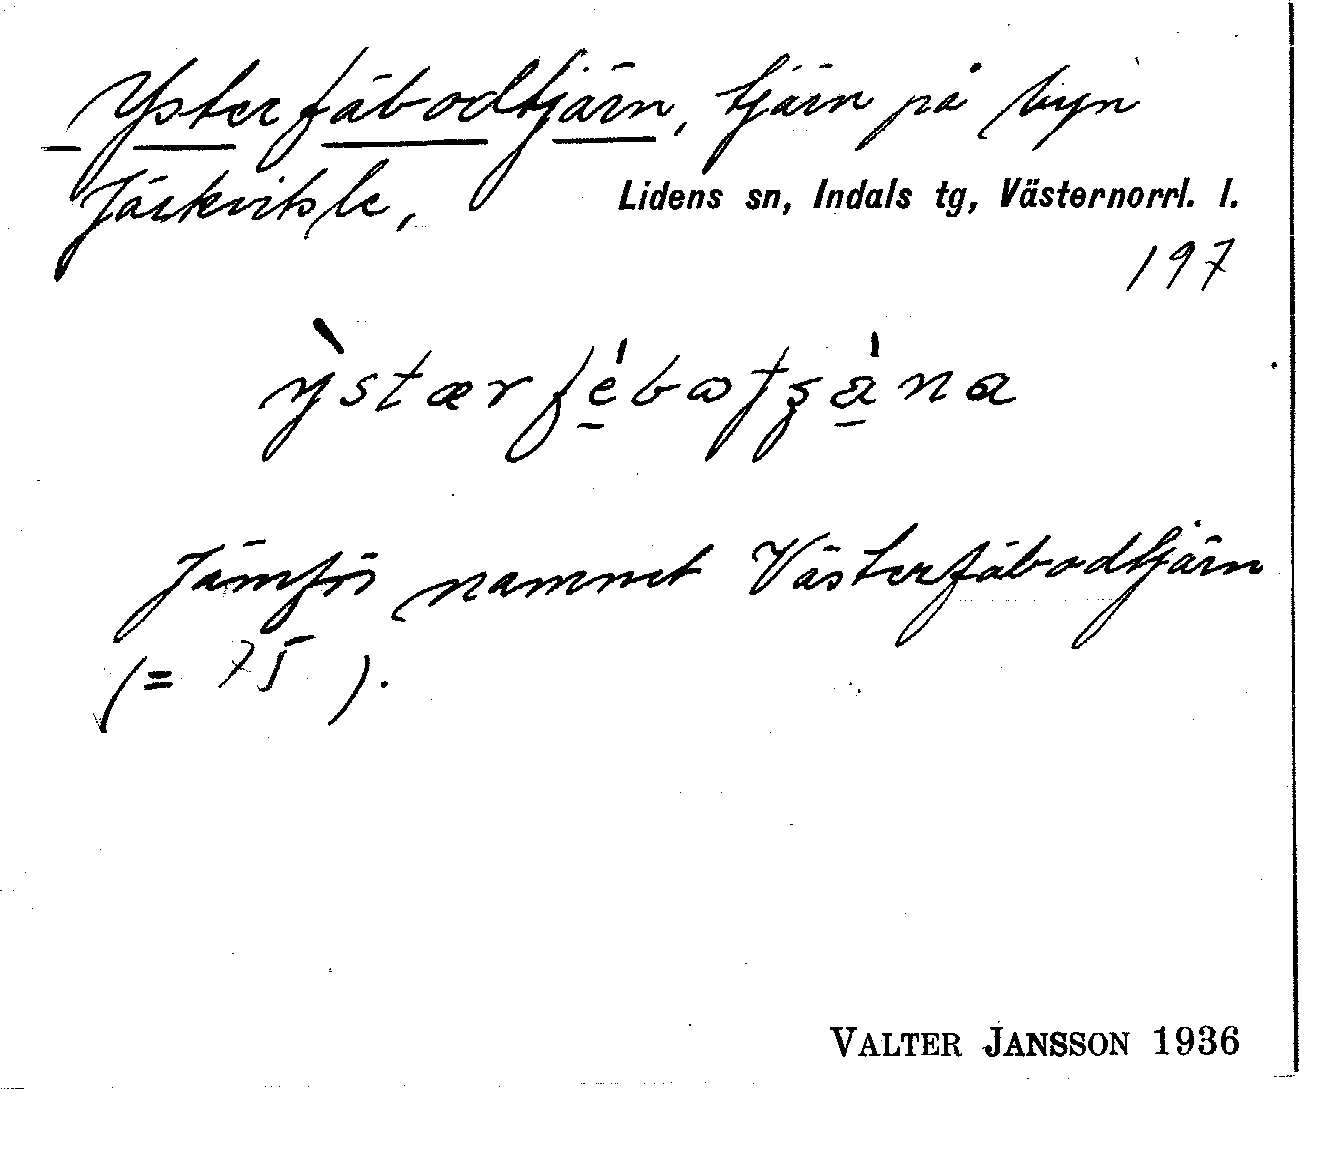 Ysterfäbodtjärn, tjärn på byn
Järkvitsle, Lidens sn, Indals tg, Västernorrl. l.
197
ỳstærfé̱bωtʂa̱̍na
Jämför namnet Västerfäbodtjärn
(= 75 ).
VALTER JANSSON 1936